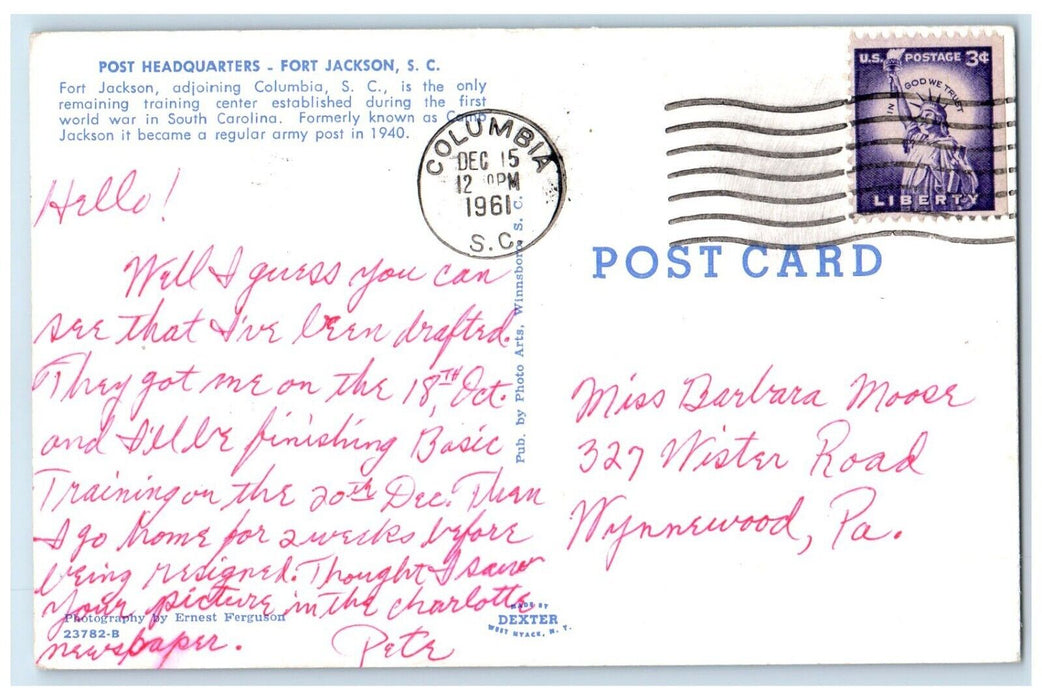 POST HEADQUARTERS - FORT JACKSON, S. C.
Fort Jackson, adjoining Columbia, S. C., is the only
remaining training center established during the first
world war in South Carolina. Formerly known as Camp
Jackson it became a regular army post in 1940.
Hello!
Well I guess you can
see that I've been drafted.
They got me on the 18TH, Oct.
and I'll be finishing Basic
Training on the 20th Dec. Then
I go home for 2 weeks before
being resigned. Thought I saw
your picture in the charlotte
newspaper.
Pete
Photography by Ernest Ferguson
23782-B
Pub. by Photo Arts, Winnsboro, S. C.
MADE BY
DEXTER
WEST NYACK, N. Y.
COLUMBIA
DEC 15
12 PM
1961
S.C.
U.S. POSTAGE 3¢
IN GOD WE TRUST
LIBERTY
POST CARD
Miss Barbara Moose
327 Wister Road
Wynnewood, Pa.